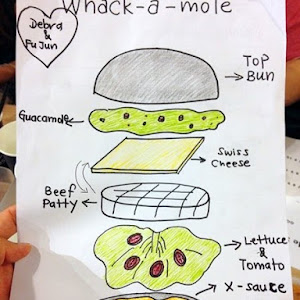 Whack-a-mole
Debra
&
Fu Jun
Top
Bun
Guacamole
Swiss
Cheese
Beef
Patty
Lettuce
&
Tomato
X-sauce